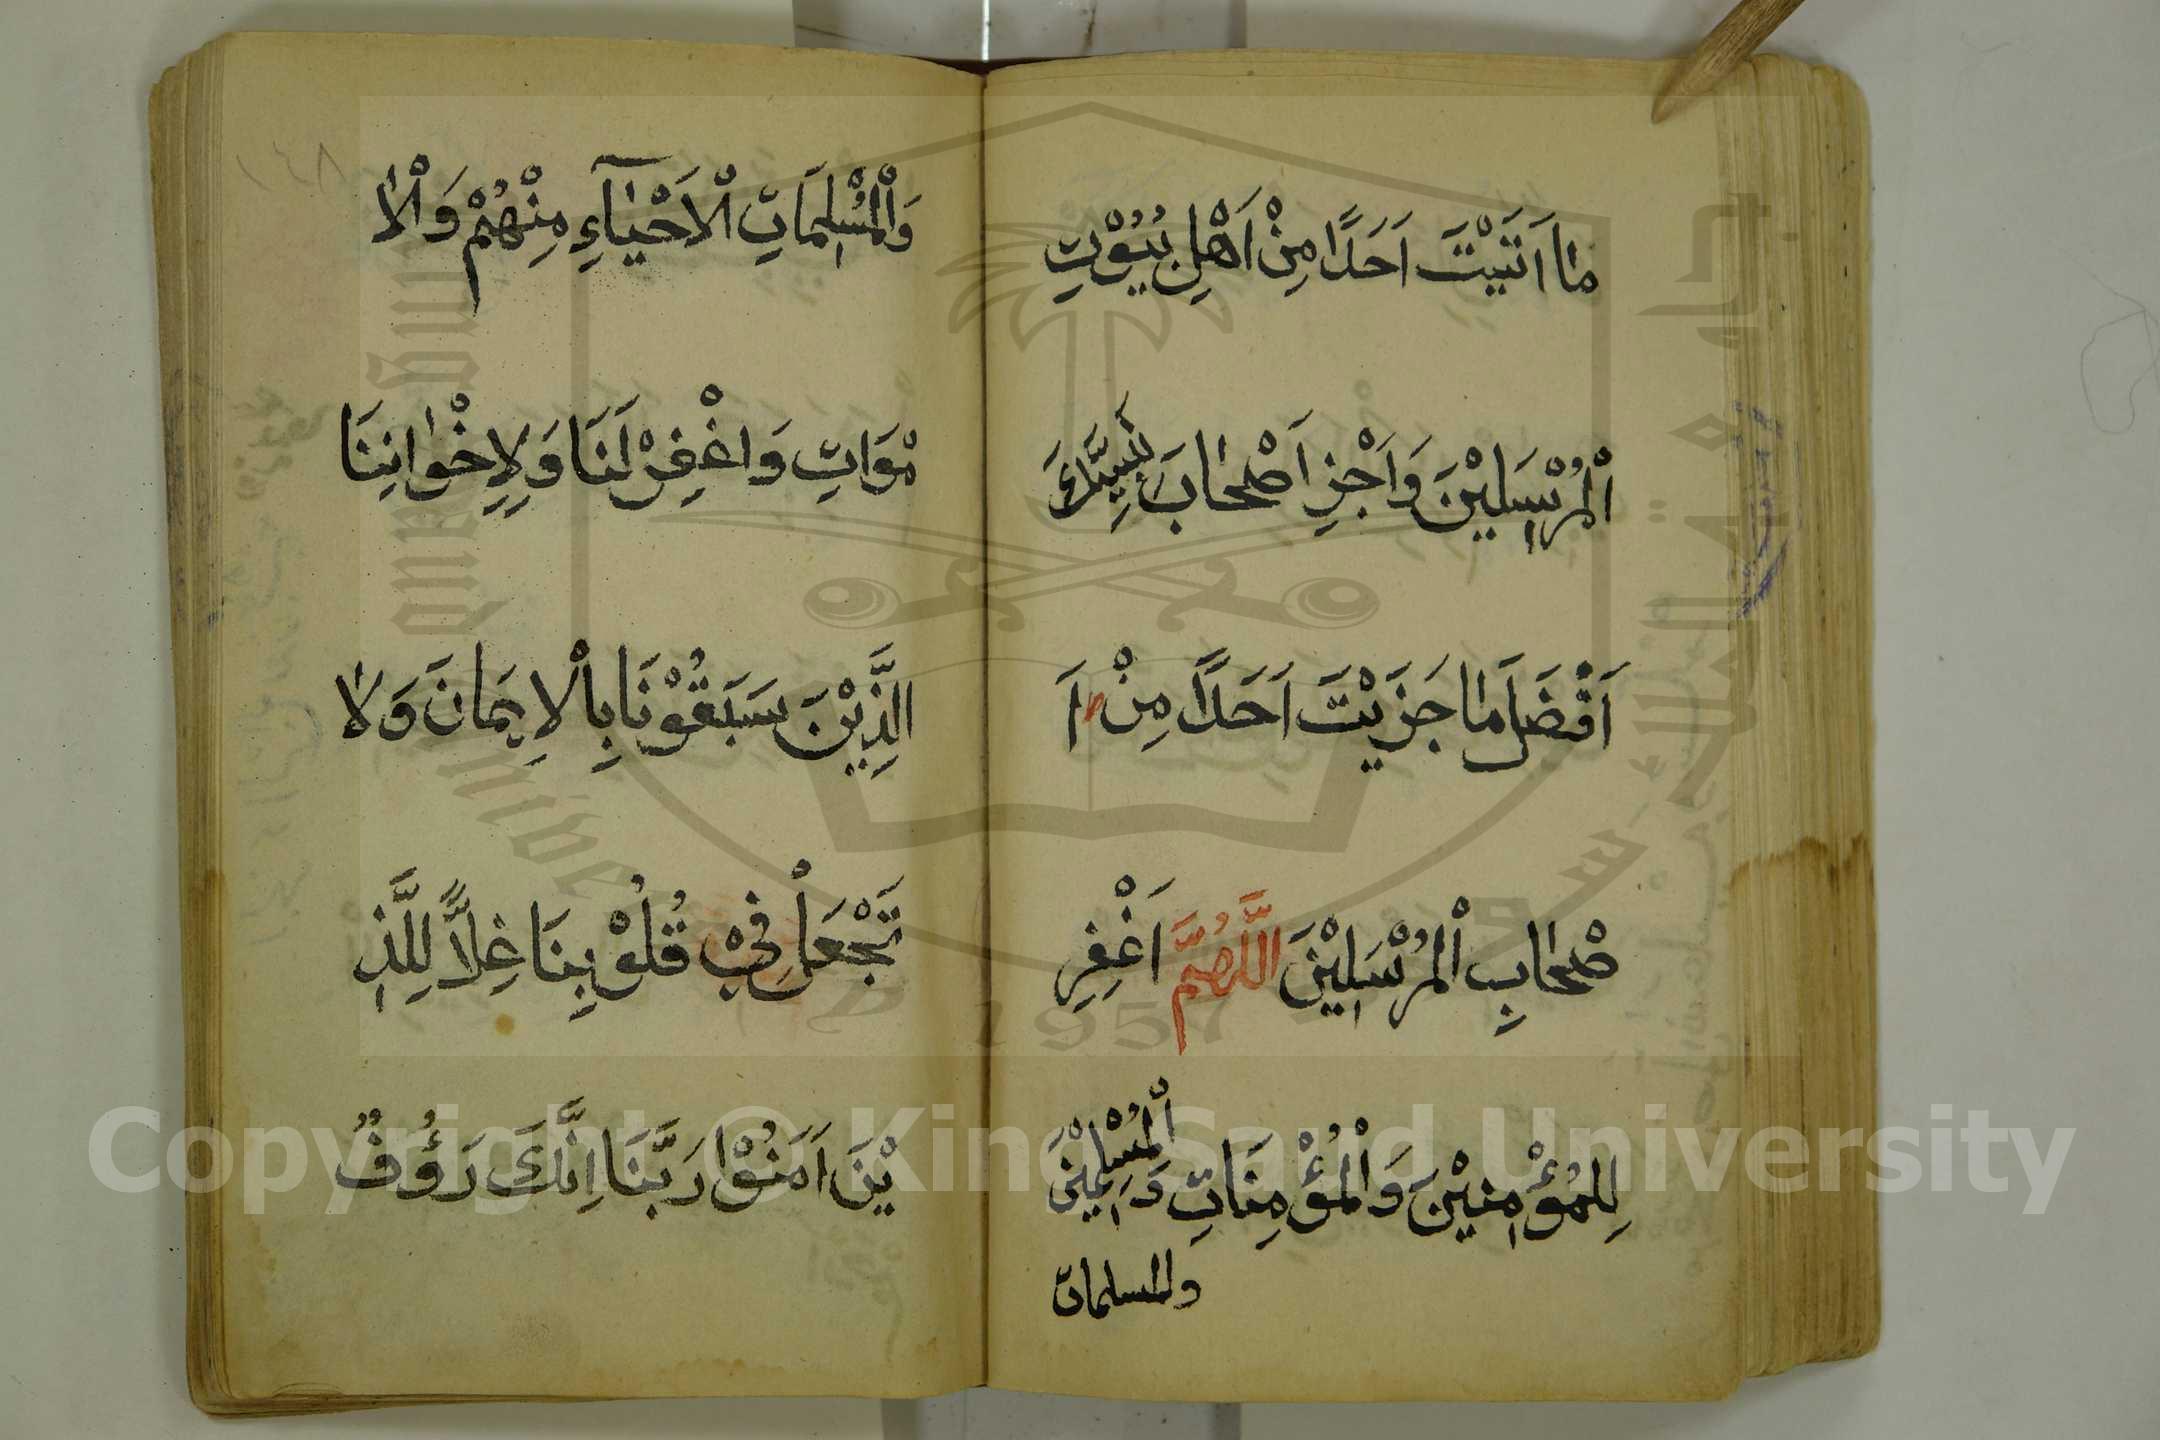 مَا اَتَيْتَ اَحَدًا مِنْ اَهْلِ بُيُوْتِ
اْلمُرْسَلِيْنَ وَاَجْزِ اَصْحَابَ نَبِيِّكَ
اَفْضَلَ مَا جَزَيْتَ اَحَدًا مِنْ اَ
صْحَابِ اْلمُرْسَلِيْنَ اللَّهُمَّ اَغْفِرِ
لِلمُؤْمِنِيْنَ وَاْلمُؤْمِنَاتِ وَاْلمُسْلِمِيْنَ
والمسلمات
وَاْلمُسْلِمَاتِ اْلاَحْيَآءِ مِنْهُمْ وَاْلاَ
مْوَاتِ وَاغْفِرْ لَنَا وَلِاِخْوَانِنَا
الَّذِيْنَ سَبَقُوْنَا بِاْلاِيمَانَ وَلاَ
تَجْعَلْ فِيْ قُلُوْبِنَا غِلاًّ لِلَّذِ
يْنَ اَمَنُوْا رَبَّنَا اِنَّكَ رَؤُوفُ
١٤٨
Copyright © King Saud University
1957